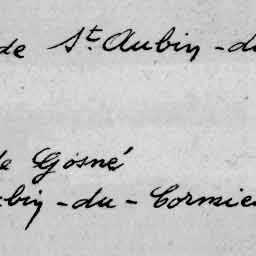 de St. Aubin - du
de Gosné
bin - du - Cormier